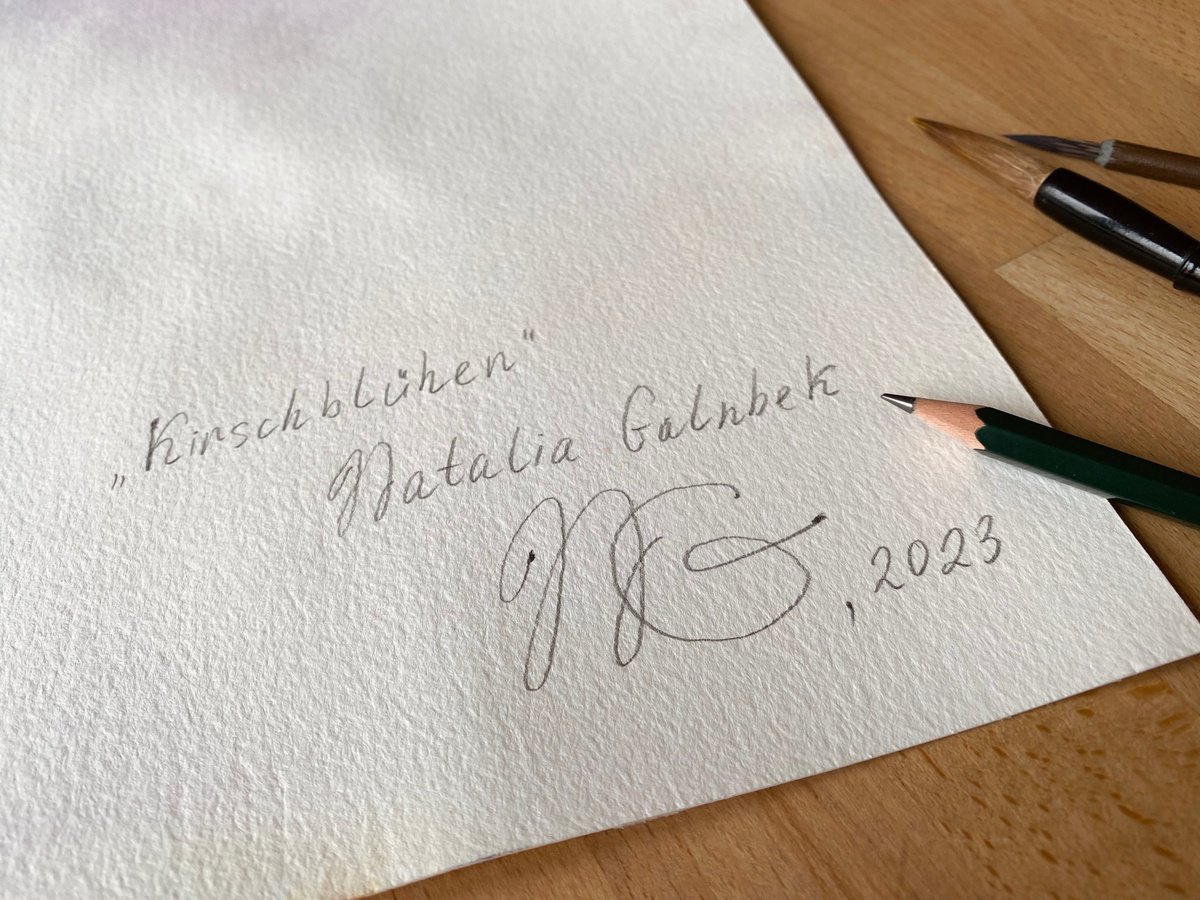 „Kirschblühen"
Natalia Galnbek
NG, 2023